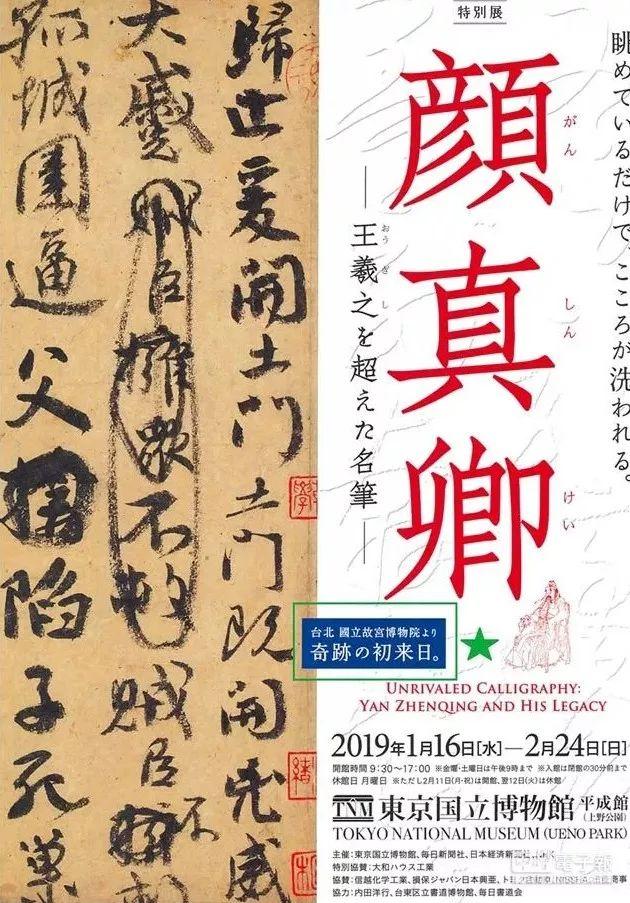 特別展
眺めているだけで、こころが洗われる。
顔真卿
がん しん けい
―王羲之を超えた名筆―
おう ぎ し
台北 國立故宮博物院より
奇跡の初来日。
UNRIVALED CALLIGRAPHY:
YAN ZHENQING AND HIS LEGACY
2019年1月16日[水]―2月24日[日]
開館時間 9:30〜17:00 ※金曜・土曜日は午後9時まで ※入館は閉館の30分前まで
休館日 月曜日 ※ただし2月11日(月・祝)は開館、翌12日(火)は休館
東京国立博物館 平成館
(上野公園)
TOKYO NATIONAL MUSEUM (UENO PARK)
主催:東京国立博物館、毎日新聞社、日本経済新聞社、NHK
特別協賛:大和ハウス工業
協賛:信越化学工業、損保ジャパン日本興亜、
協力:内田洋行、台東区立書道博物館、毎日書道会
歸止爰開土門土門既開兇威
大蹙賊臣擁衆不救賊臣不
孤城圍逼父陷子死巢